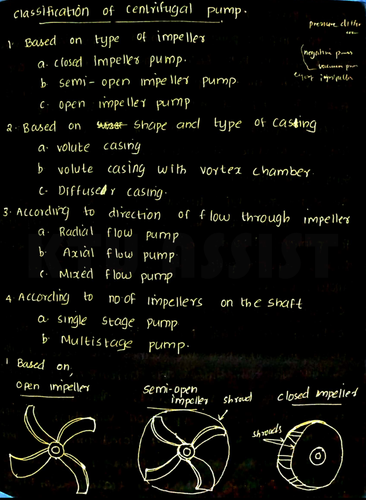 classification of centrifugal pump.
pressure differ
negative press
vacuum pum
1. Based on type of impeller
a. closed Impeller pump.
b semi-open impeller pump
c. open impeller pump
2. Based on shape and type of casing
a. volute casing
b volute casing with vortex chamber.
c. Diffuser casing.
3. According to direction of flow through impeller
a. Radial flow pump
b. Axial flow pump
c. Mixed flow pump
4 According to no of impellers on the shaft
a. single stage pump
b. Multistage pump.
1 Based on
open impeller
semi-open impeller
shroud
closed impeller
shreads